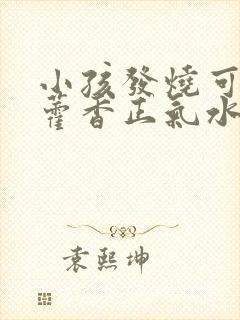 小孩發燒可
藿香正氣水
袁熙坤